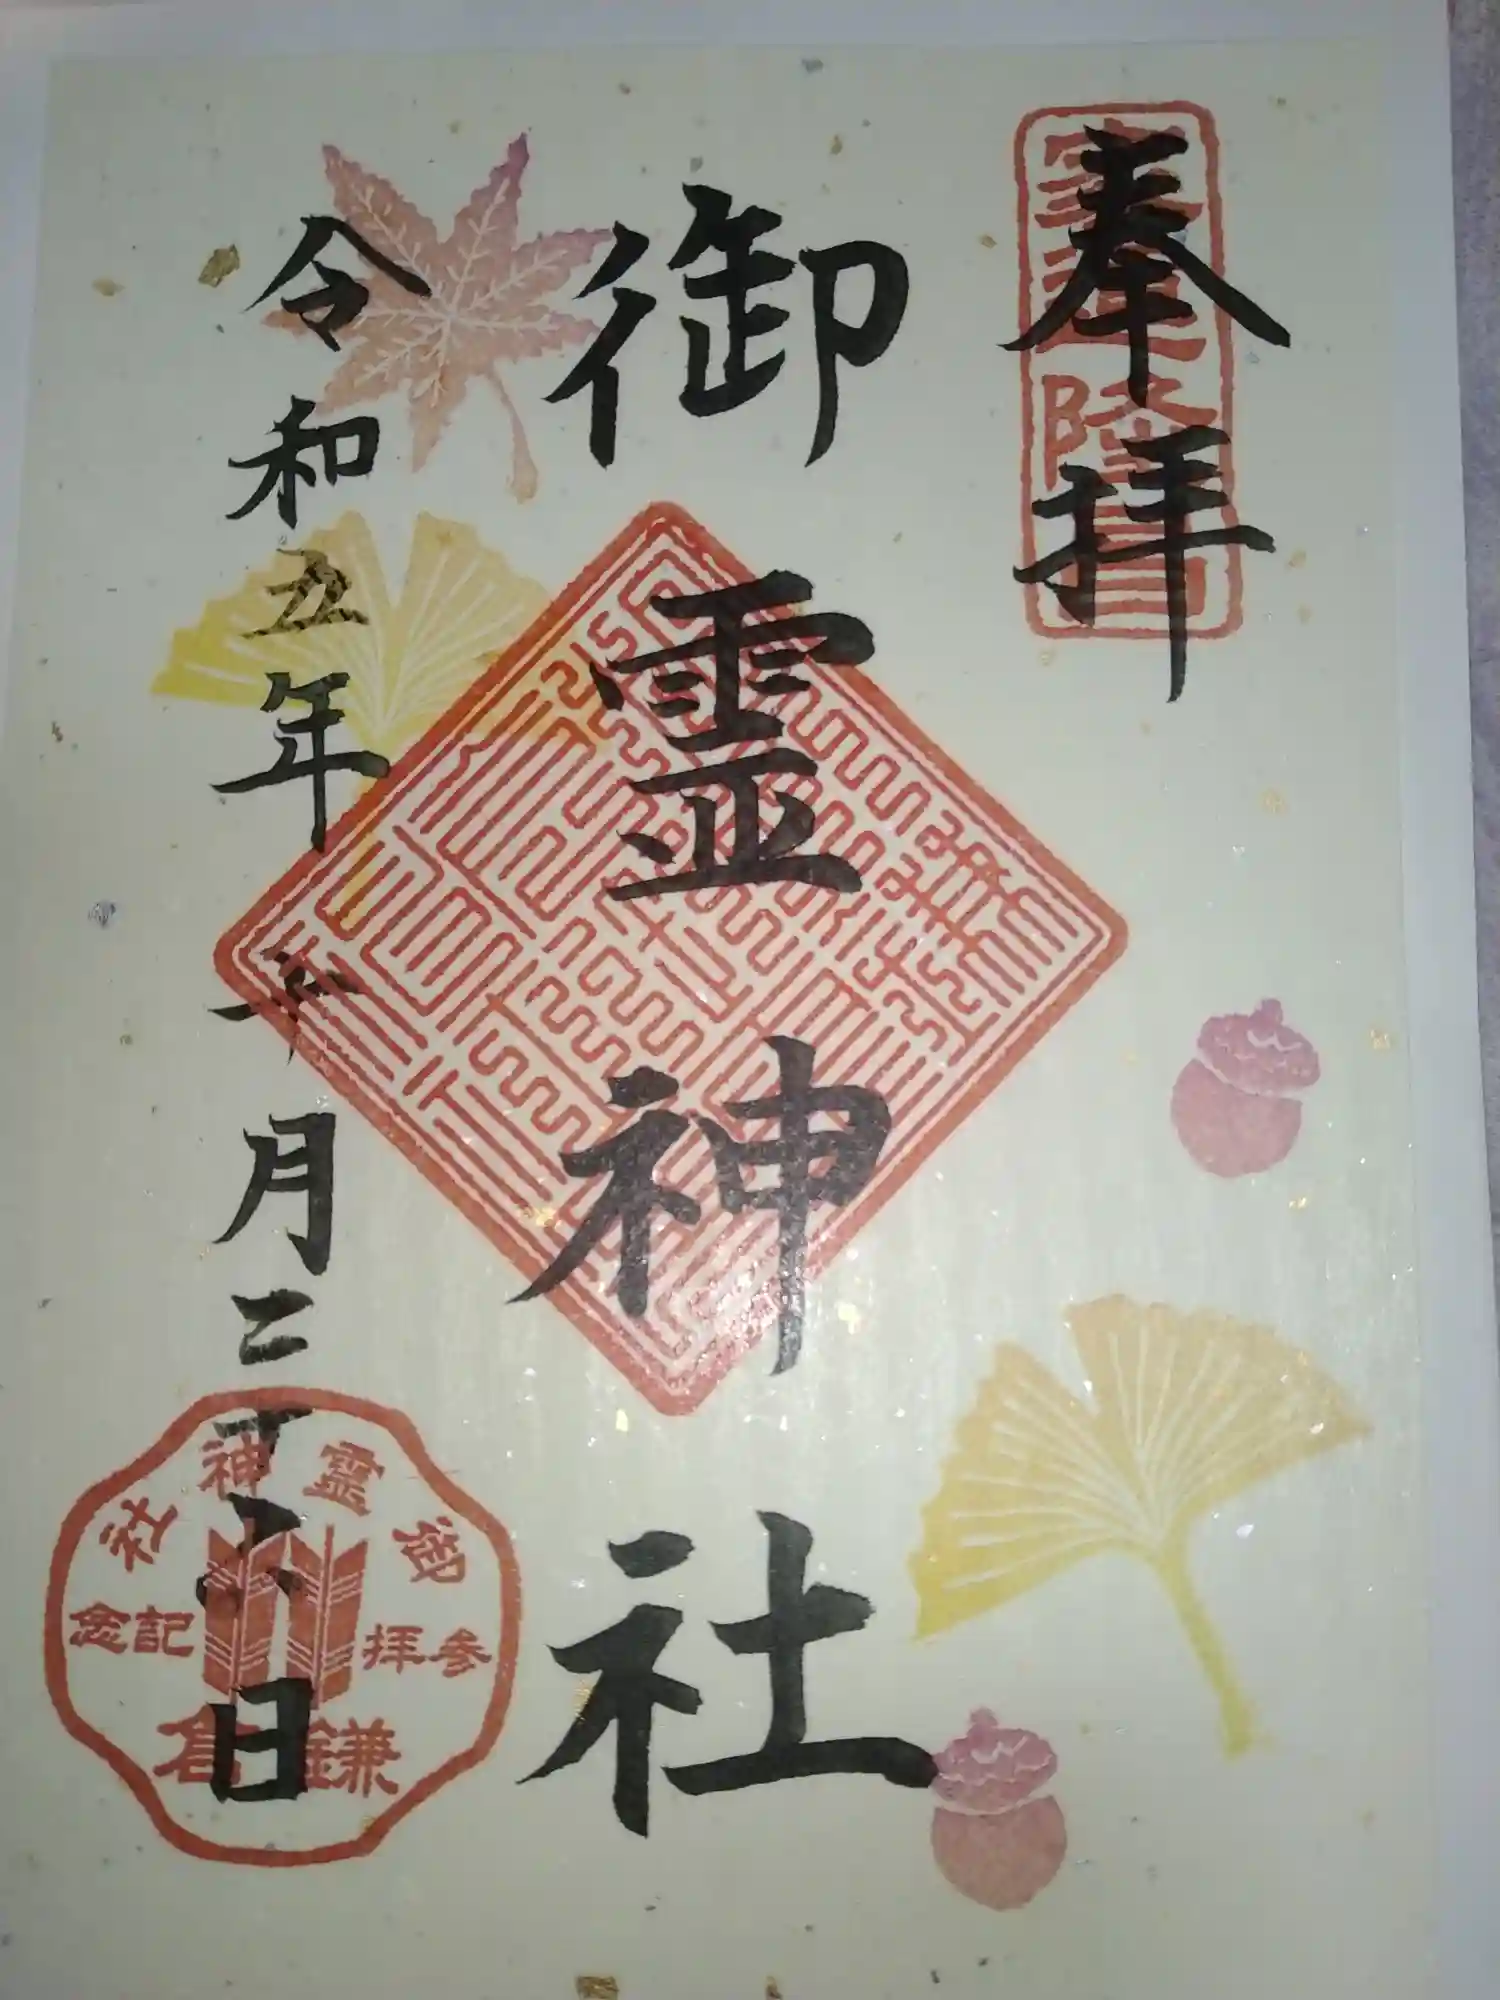 奉拝
家運隆昌
御霊神社
令和五年十一月二十六日
御霊神社
参拝記念
鎌倉